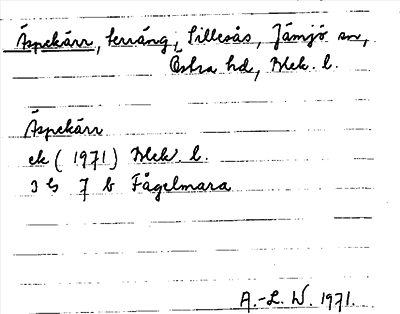 Äspekärr, terräng, Sillesås, Jämjö sn,
Östra hd, Blek. l.
Äspekärr
ek (1971) Blek. l.
3 G 7 b Fågelmara
A.-L. W. 1971.